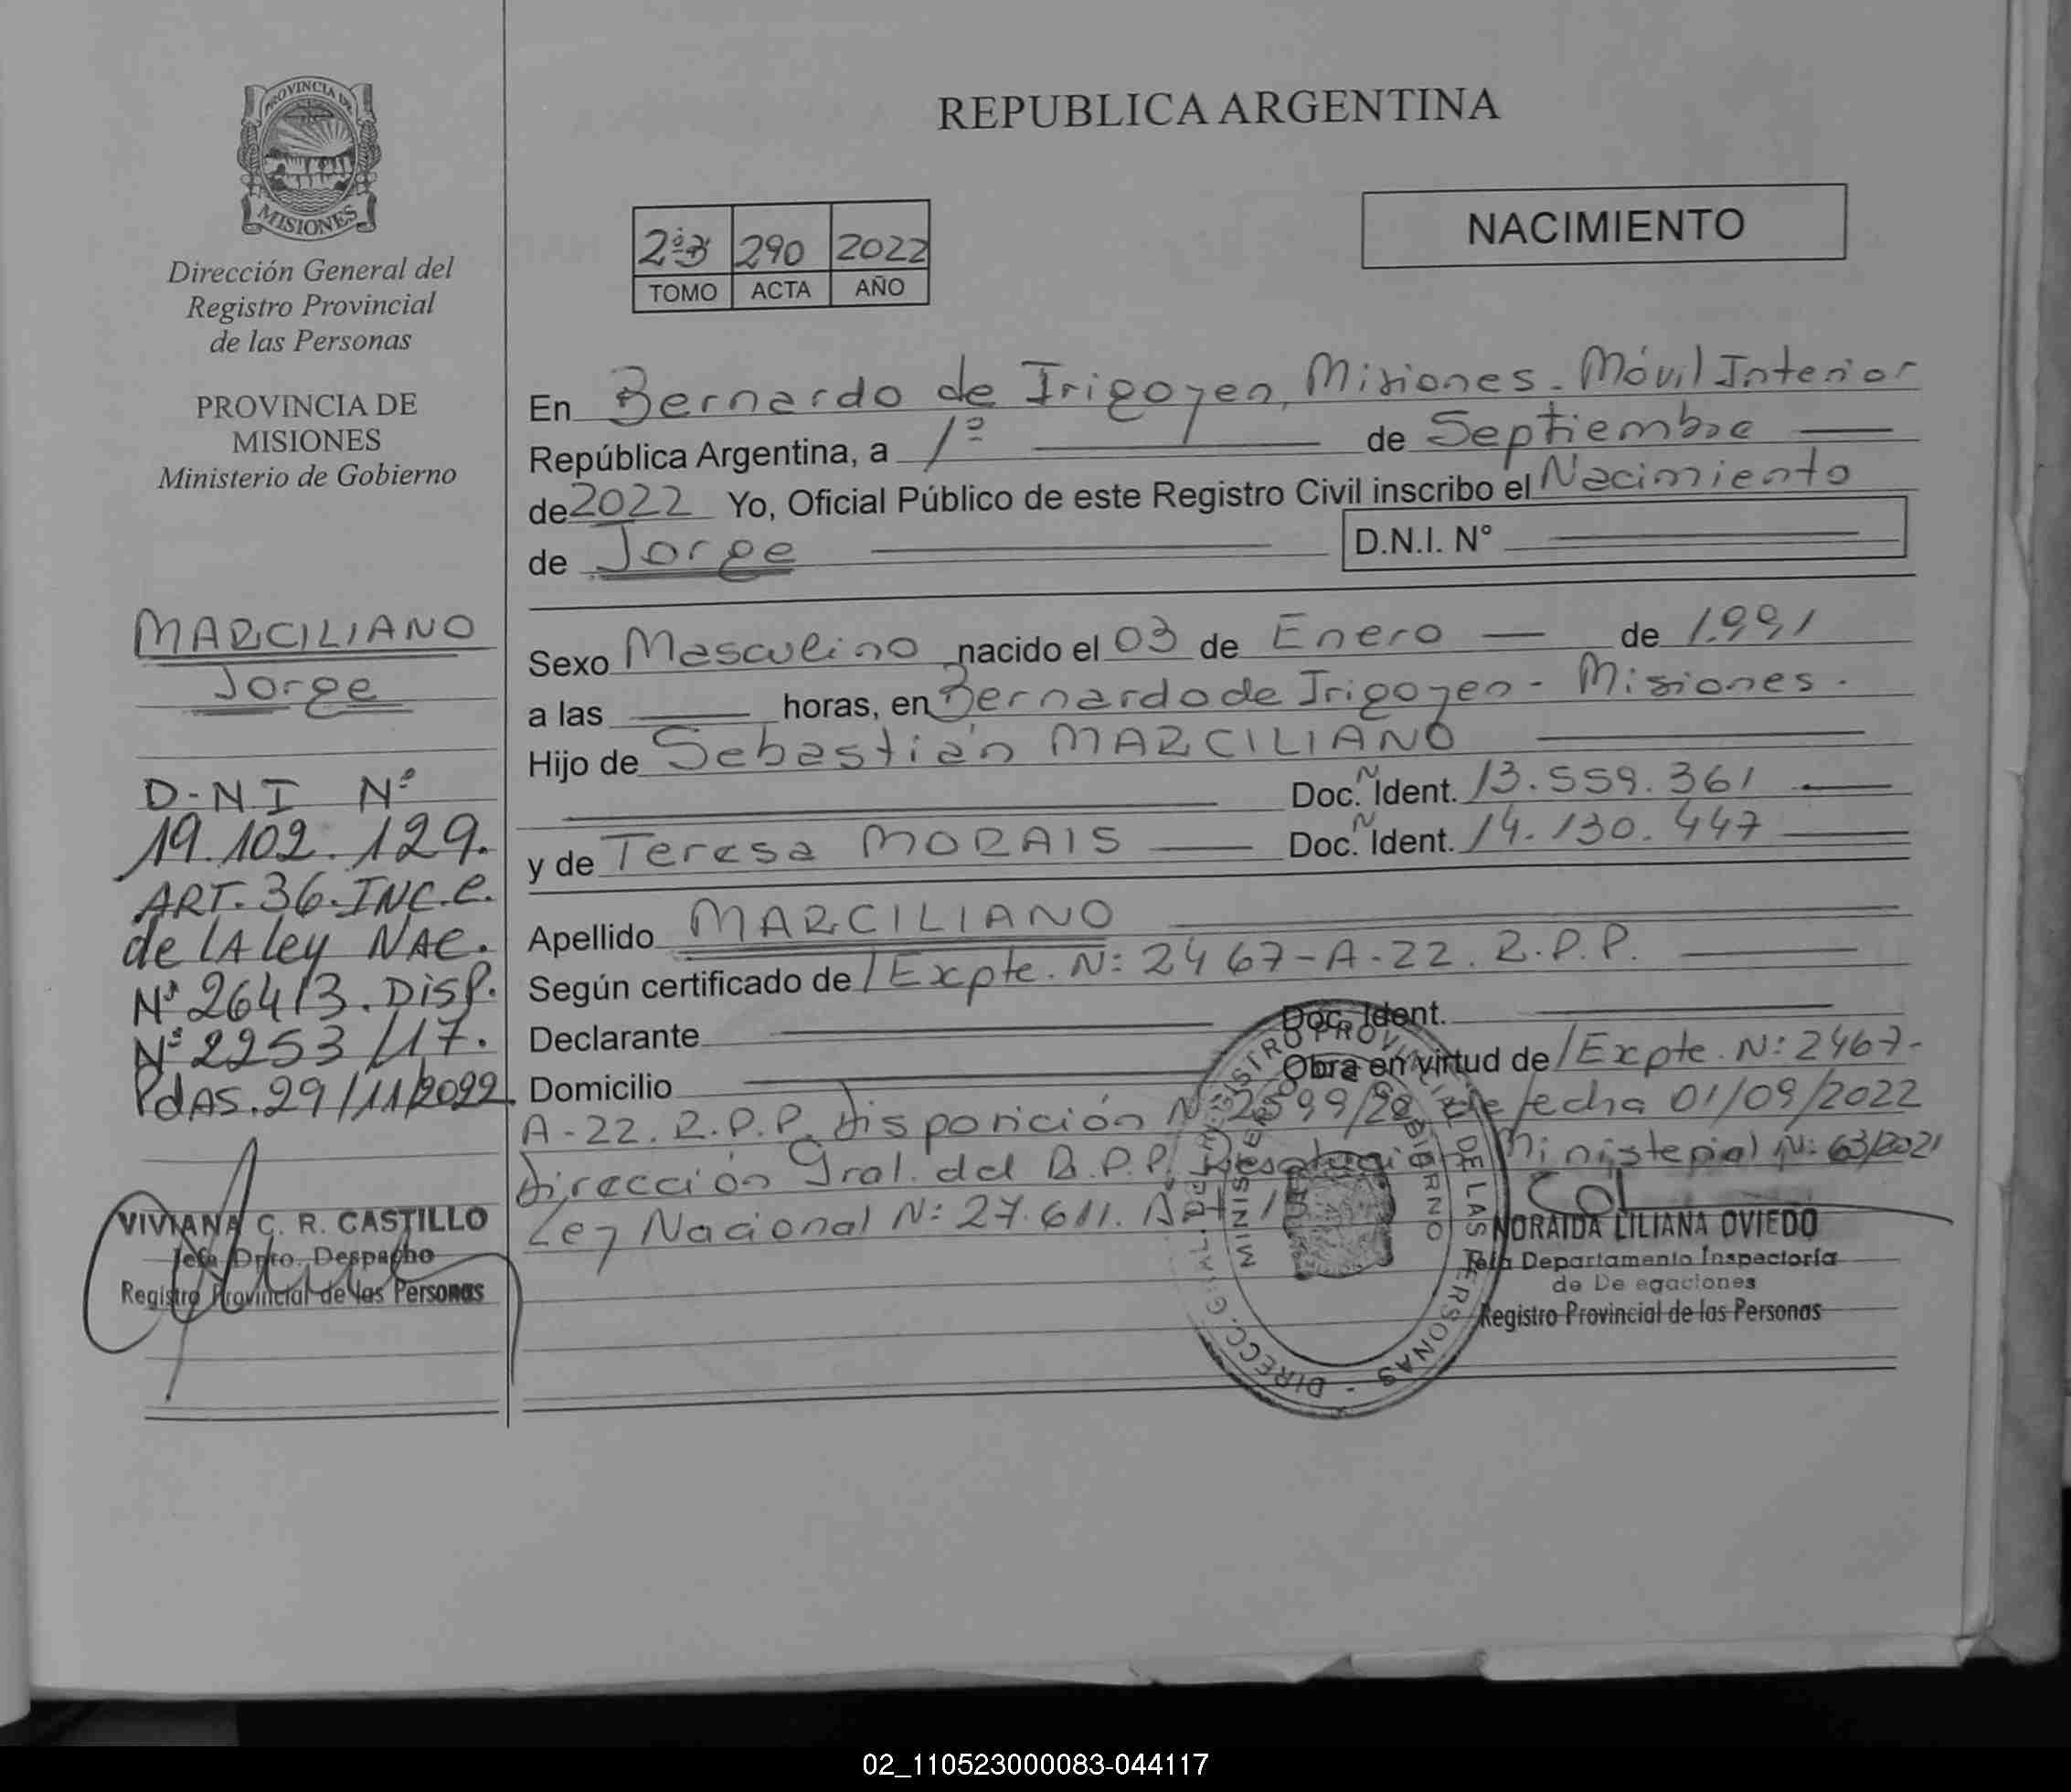 PROVINCIA DE
MISIONES
Dirección General del
Registro Provincial
de las Personas
PROVINCIA DE
MISIONES
Ministerio de Gobierno
MARCILIANO
Jorge
D.N.I Nº
19.102.129.
ART. 36. INC. C.
de LA ley NAC.
Nº 26413. DISP.
Nº 2253/17.
PdAS. 29/11/2022.
VIVIANA C. R. CASTILLO
Jefa Dpto. Despacho
Registro Provincial de las Personas
REPUBLICA ARGENTINA
NACIMIENTO
2º 290 2022
TOMO ACTA AÑO
En Bernardo de Irigoyen, Misiones. Móvil Interior
República Argentina, a 1º de Septiembre
de 2022 Yo, Oficial Público de este Registro Civil inscribo el Nacimiento
de Jorge D.N.I. N°
Sexo Masculino nacido el 03 de Enero de 1.991
a las horas, en Bernardo de Irigoyen - Misiones.
Hijo de Sebastián MARCILIANO
Doc. N Ident. 13.559.361
y de Teresa MORAIS Doc. N Ident. 14.130.447
Apellido MARCILIANO
Según certificado de / Expte. Nº 2467-A-22. R.P.P.
Declarante Doc. Ident.
Domicilio Obra en virtud de / Expte. Nº 2467-
A-22. R.P.P. Disposición Nº 2599/22 de fecha 01/09/2022
Dirección Gral. del R.P.P. Resolución Ministerial Nº 63/2021
Ley Nacional Nº 27.611. Art
DIRECC. GRAL. DEL REGISTRO PROVINCIAL DE LAS PERSONAS -
MINISTERIO DE GOBIERNO
NORAIDA LILIANA OVIEDO
Jefa Departamento Inspectoría
de De egaciones
Registro Provincial de las Personas
02_110523000083-044117